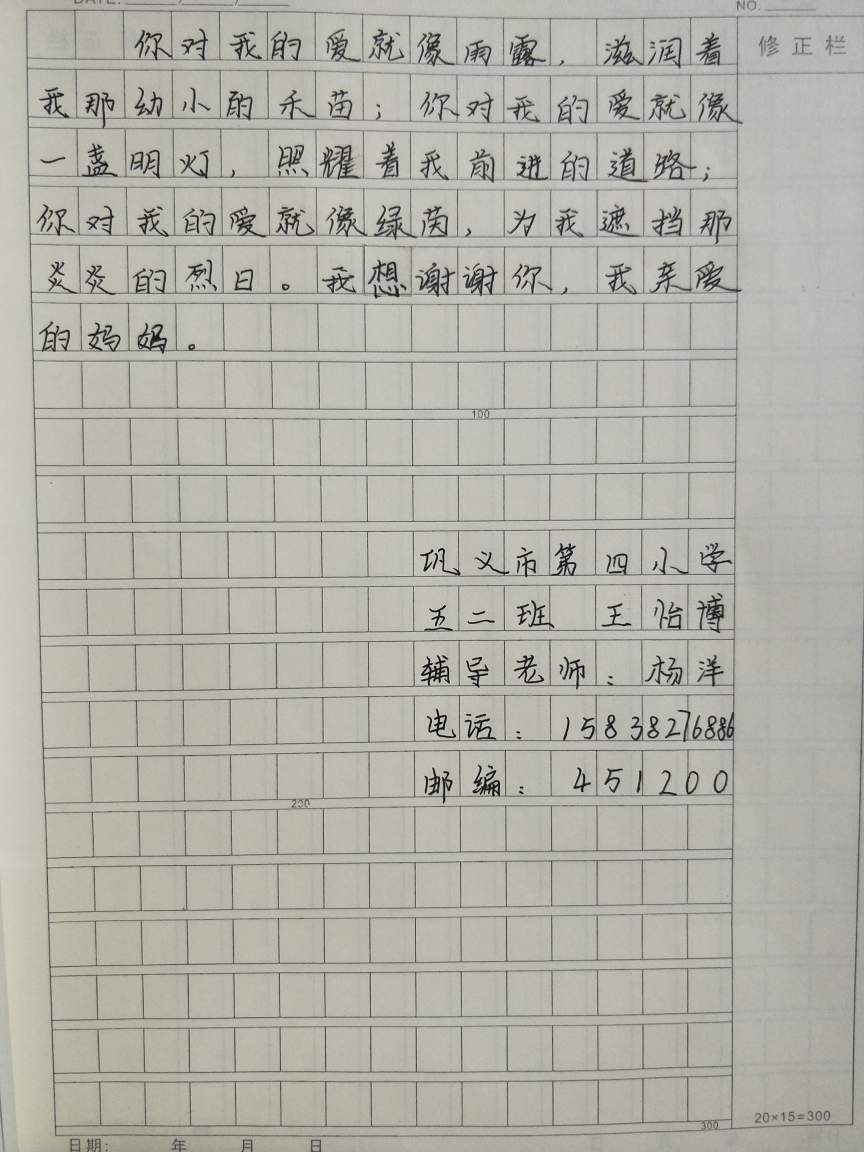 DATE: ____/____/____
NO. ____
修正栏
你对我的爱就像雨露，滋润着
我那幼小的禾苗；你对我的爱就像
一盏明灯，照耀着我前进的道路；
你对我的爱就像绿茵，为我遮挡那
炎炎的烈日。我想谢谢你，我亲爱
的妈妈。
100
巩义市第四小学
五二班 王怡博
辅导老师：杨洋
电话：15838276886
邮编：451200
200
300
20×15=300
日期: 年 月 日